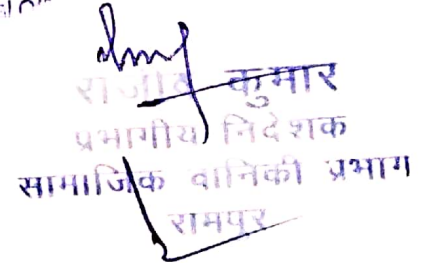 कुमार
प्रभागीय निदेशक
सामाजिक वानिकी प्रभाग
रामपुर